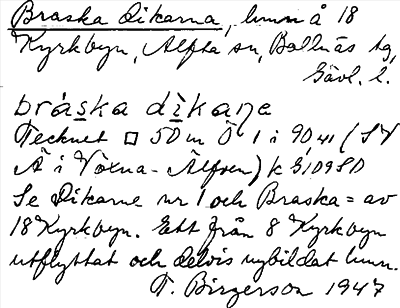 Braska Dikarna, hmn å 18
Kyrkbyn, Alfta sn, Bollnäs tg,
Gävl. l.
bråska dikaṇe
Tecknet □ 50 m Ö 1 i 90,41 (SV
Ä i Voxna-Älfven) k G109SD
Se Dikarne nr 1 och Braska = av
18 Kyrkbyn. Ett från 8 Kyrkbyn
utflyttat och delvis nybildat hmn.
T. Birgerson 1947